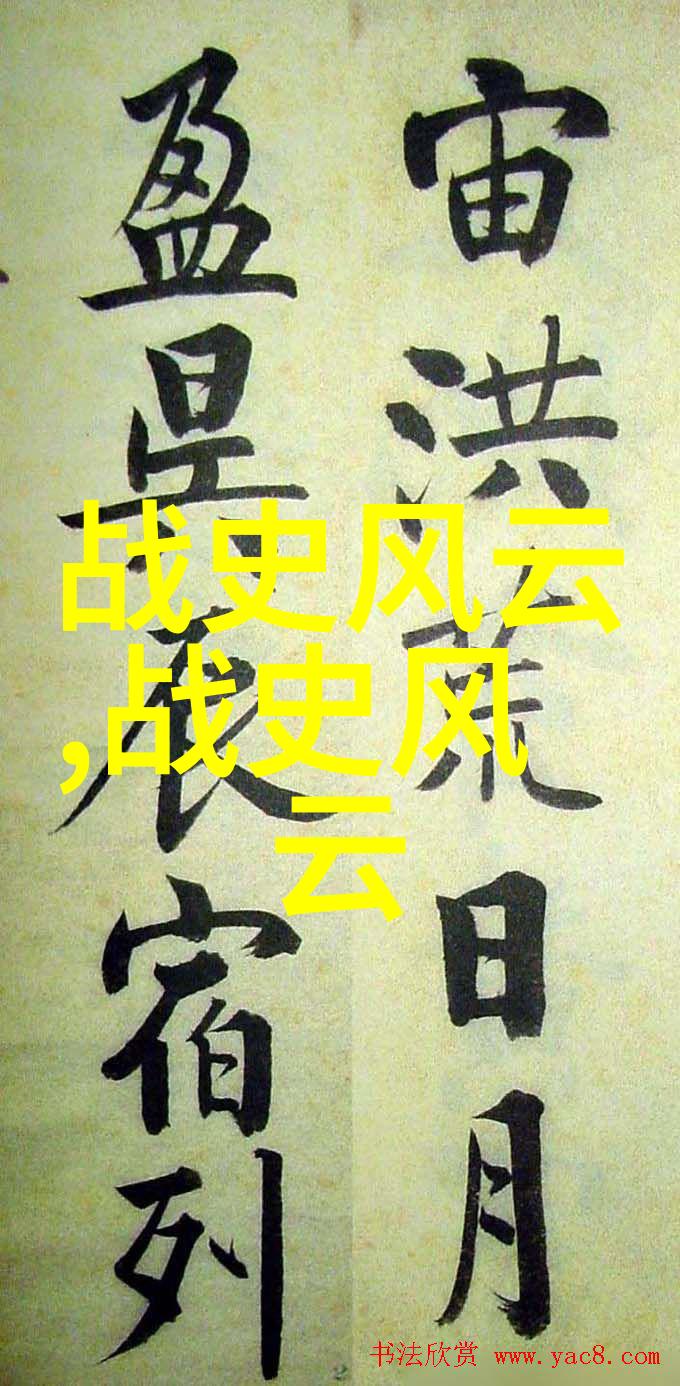 宙洪荒日月
盈昃辰宿列
战史风云
,战史风
云
书法欣赏 www.yac8.com